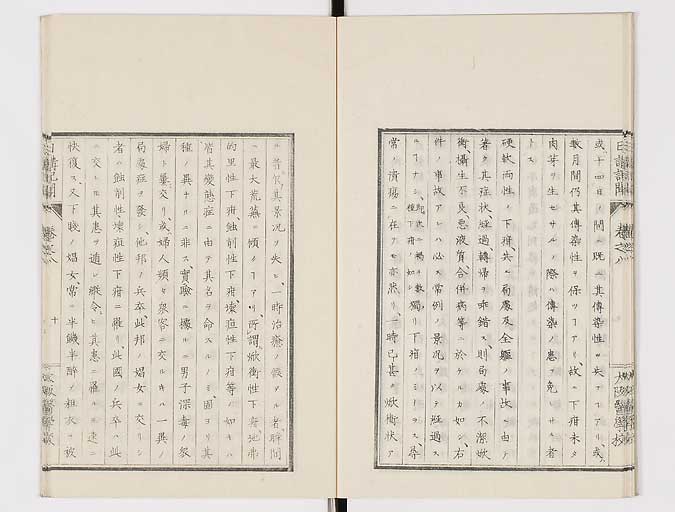 或ハ十四日ノ間ニ既ニ其傳染性ヲ失フヿアリ、或ハ
数月間仍其傳染性ヲ保ツヿアリ、故ニ下疳未タ
肉芽ヲ生セサルノ際ハ傳染ノ患ヲ免レサル者
トス
硬軟両性ノ下疳、共ニ局處及全軀ノ事故ニ由テ
著ク其症状、経過轉帰ヲ乖錯ス、則局處ノ不潔焮
衝、攝生不良、悪液質合併病等ニ於ケルカ如シ、右
件ノ事故アレハ必ス常例ノ景況ヲ以テ経過ス
ルヿナシ、獨リ下疳ノミナラス尋
常ノ潰瘍ニ在テモ亦然リ、一時已甚ク焮衝状ア
ルノ景況ヲ失ヒ、一時治療ノ後タル者、瞬間
ニ最大荒蕪ニ傾クヿアリ、所謂焮衝性下疳、弛弗
的里性下疳、蝕剖性下疳、壊疽性下疳等ノ如キハ
皆其變態症ニ由テ其名ヲ命スルノミ、固ヨリ其
種ノ異ナルニ非ス、實驗ニ據ルニ男子深毒ノ
婦ト交リ、或ハ婦人頻々衆客ニ交ルキハ一異ノ
局處症ヲ發シ、他邦ノ兵卒此邦ノ娼女ニ交リシ
者ハ蝕剖性壊疽性下疳ニ罹リ、此國ノ兵卒ハ此
ニ交ルモ其患ヲ遁レ、縦令ヒ其患ニ罹ルモ速ニ
快復ス、又下賎ノ娼女、常ニ半饑半酔ノ粗衣ヲ被
日講記聞 巻之八
十
大阪醫學校